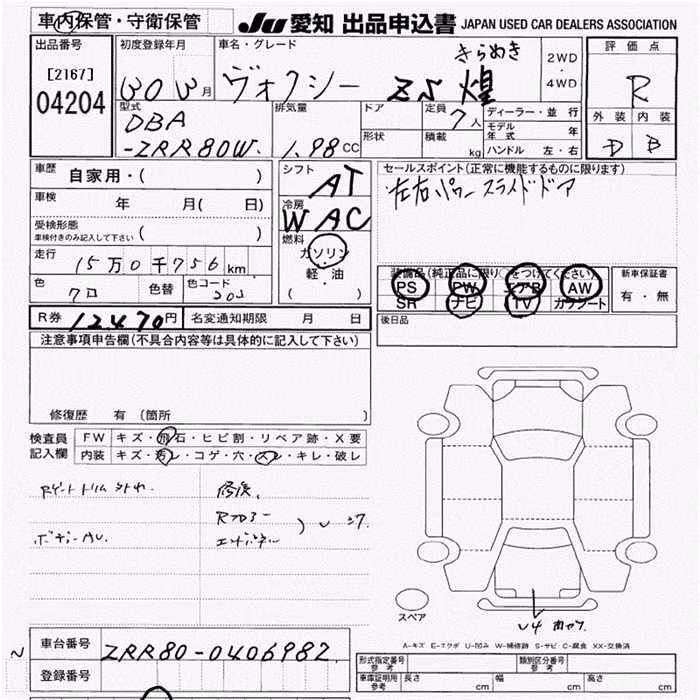 車内保管・守衛保管
JU 愛知 出品申込書 JAPAN USED CAR DEALERS ASSOCIATION
出品番号
[2167]
04204
初度登録年月
30 3月
車名・グレード
ヴォクシー ZS 煌
きらめき
2WD
・
4WD
評価点
R
外装 内装
D B
型式
DBA
-ZRR80W.
排気量
1.98 CC
ドア
形状
定員
7人
積載
kg
ディーラー・並行
モデル年式 年
ハンドル 左・右
車歴
自家用・( )
車検
年 月( 日)
受検形態
車検付きのみ記入して下さい ( )
走行
15万0千756km
色
クロ
色替
色コード
202
シフト
AT
冷房
WAC
燃料
ガソリン
・
軽・油
( )
セールスポイント(正常に機能するものに限ります)
左右パワースライドドア
装備品(純正品に限り○をつけてください)
PS PW エアB AW
SR ナビ TV カワシート
新車保証書
有・無
R券 12470円
名変通知期限 月 日
後日品
注意事項申告欄(不具合内容等は具体的に記入して下さい)
修復歴 有 (箇所 )
検査員
記入欄
FW キズ・飛石・ヒビ割・リペア跡・X要
内装 キズ・汚レ・コゲ・穴・スレ・キレ・破レ
修復、
Rフロアー
エンドパネル
ボデーAU.
スペア
A-キズ E-エクボ U-凹み W-補修跡 S-サビ C-腐食 XX-交換済
車台番号
ZRR80-0406982
登録番号
形式指定番号
参考
類別区分番号
参考
車庫証明用
参考
長さ cm 幅 cm 高さ cm